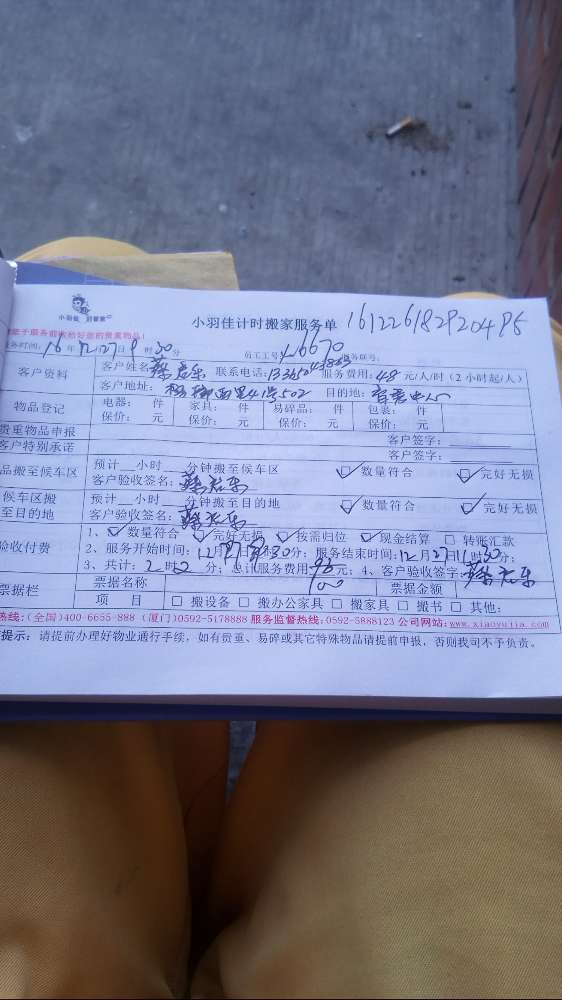 小羽佳 好管家
小羽佳计时搬家服务单 161226182920485
务时间：16年12月27日9时30分 员工工号 6670
客户资料 客户姓名： 联系电话： 服务费用：48元/人/时（2小时起/人）
客户地址： 西里41号502 目的地：
物品登记 电器： 件 家具： 件 易碎品： 件 包装： 件
保价： 元 保价： 元 保价： 元 保价： 元
贵重物品申报 客户签字：
客户特别承诺 客户签字：
品搬至候车区 预计__小时__分钟搬至候车区 数量符合 完好无损
客户验收签名：
候车区搬至目的地 预计__小时__分钟搬至目的地 数量符合 完好无损
客户验收签名：
验收付费 1、数量符合 完好无损 按需归位 现金结算 转账汇款
2、服务开始时间：12月27日9时30分；服务结束时间：12月27日11时30分；
3、共计：2时 分；总计服务费用 元；4、客户验收签字：
100
票据栏 票据名称 票据金额
项 目 搬设备 搬办公家具 搬家具 搬书 其他:
热线:(全国)400-6655-888 (厦门)0592-5178888 服务监督热线:0592-5888123 公司网站:www.xiaoyujia.com
提示：请提前办理好物业通行手续，如有贵重、易碎或其它特殊物品请提前申报，否则我司不予负责。